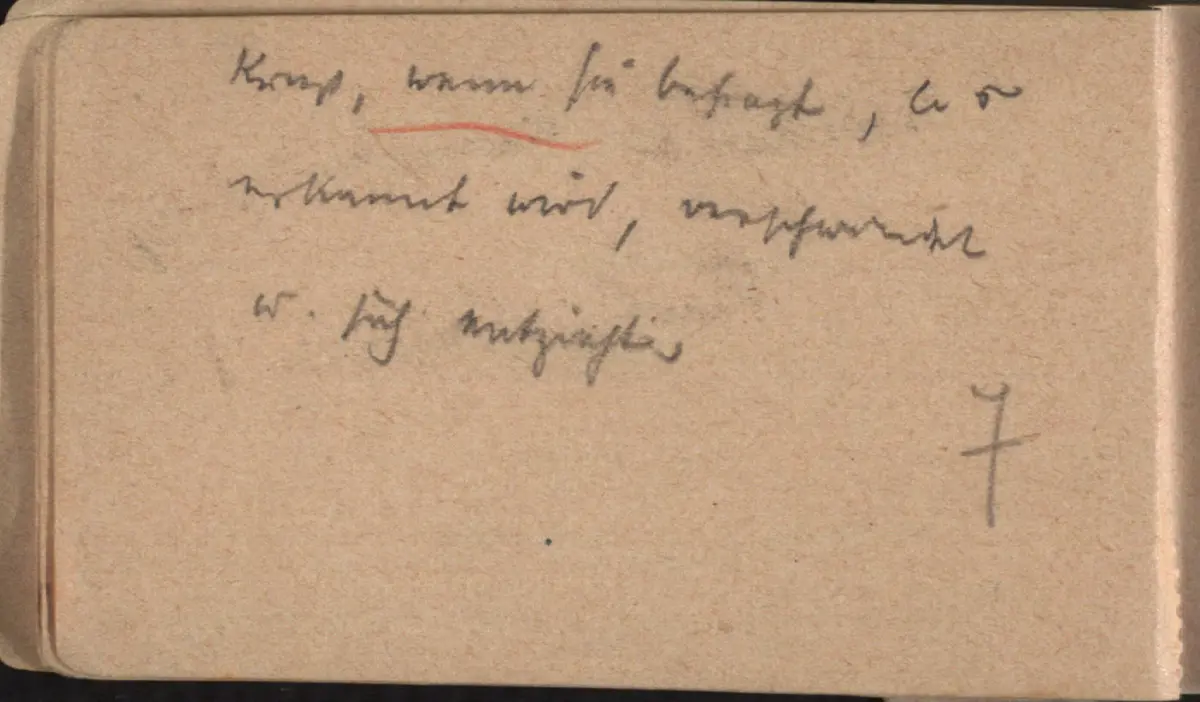 wenn sie befragt,
erkannt wird, verschwindet
u. sich entzieht
7